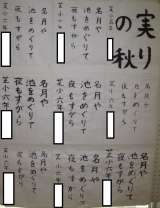 実り
の秋
芝小六年
名月や
池をめぐりて
夜もすがら
芝小六年
名月や
池をめぐりて
夜もすがら
芝小六年
名月や
池をめぐりて
夜もすがら
芝小六年
名月や
池をめぐりて
夜もすがら
芝小六年
名月や
池をめぐりて
夜もすがら
芝小六年
名月や
池をめぐりて
夜もすがら
芝小六年
名月や
池をめぐりて
夜もすがら
芝小六年
名月や
池をめぐりて
夜もすがら
芝小六年